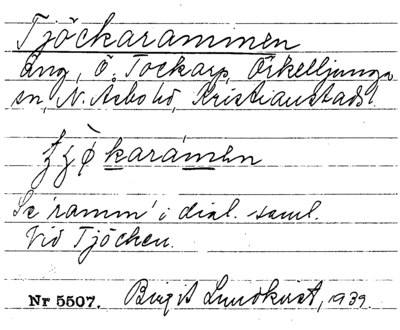 Tjöckarammen
äng, Ö. Tockarp, Örkelljunga
sn, N. Åsbo hd, Kristianstads l.
karámen
Se 'ramm' i dial. saml.
Vid Tjöcken.
Nr 5507. Birgit Lundkvist, 1939.